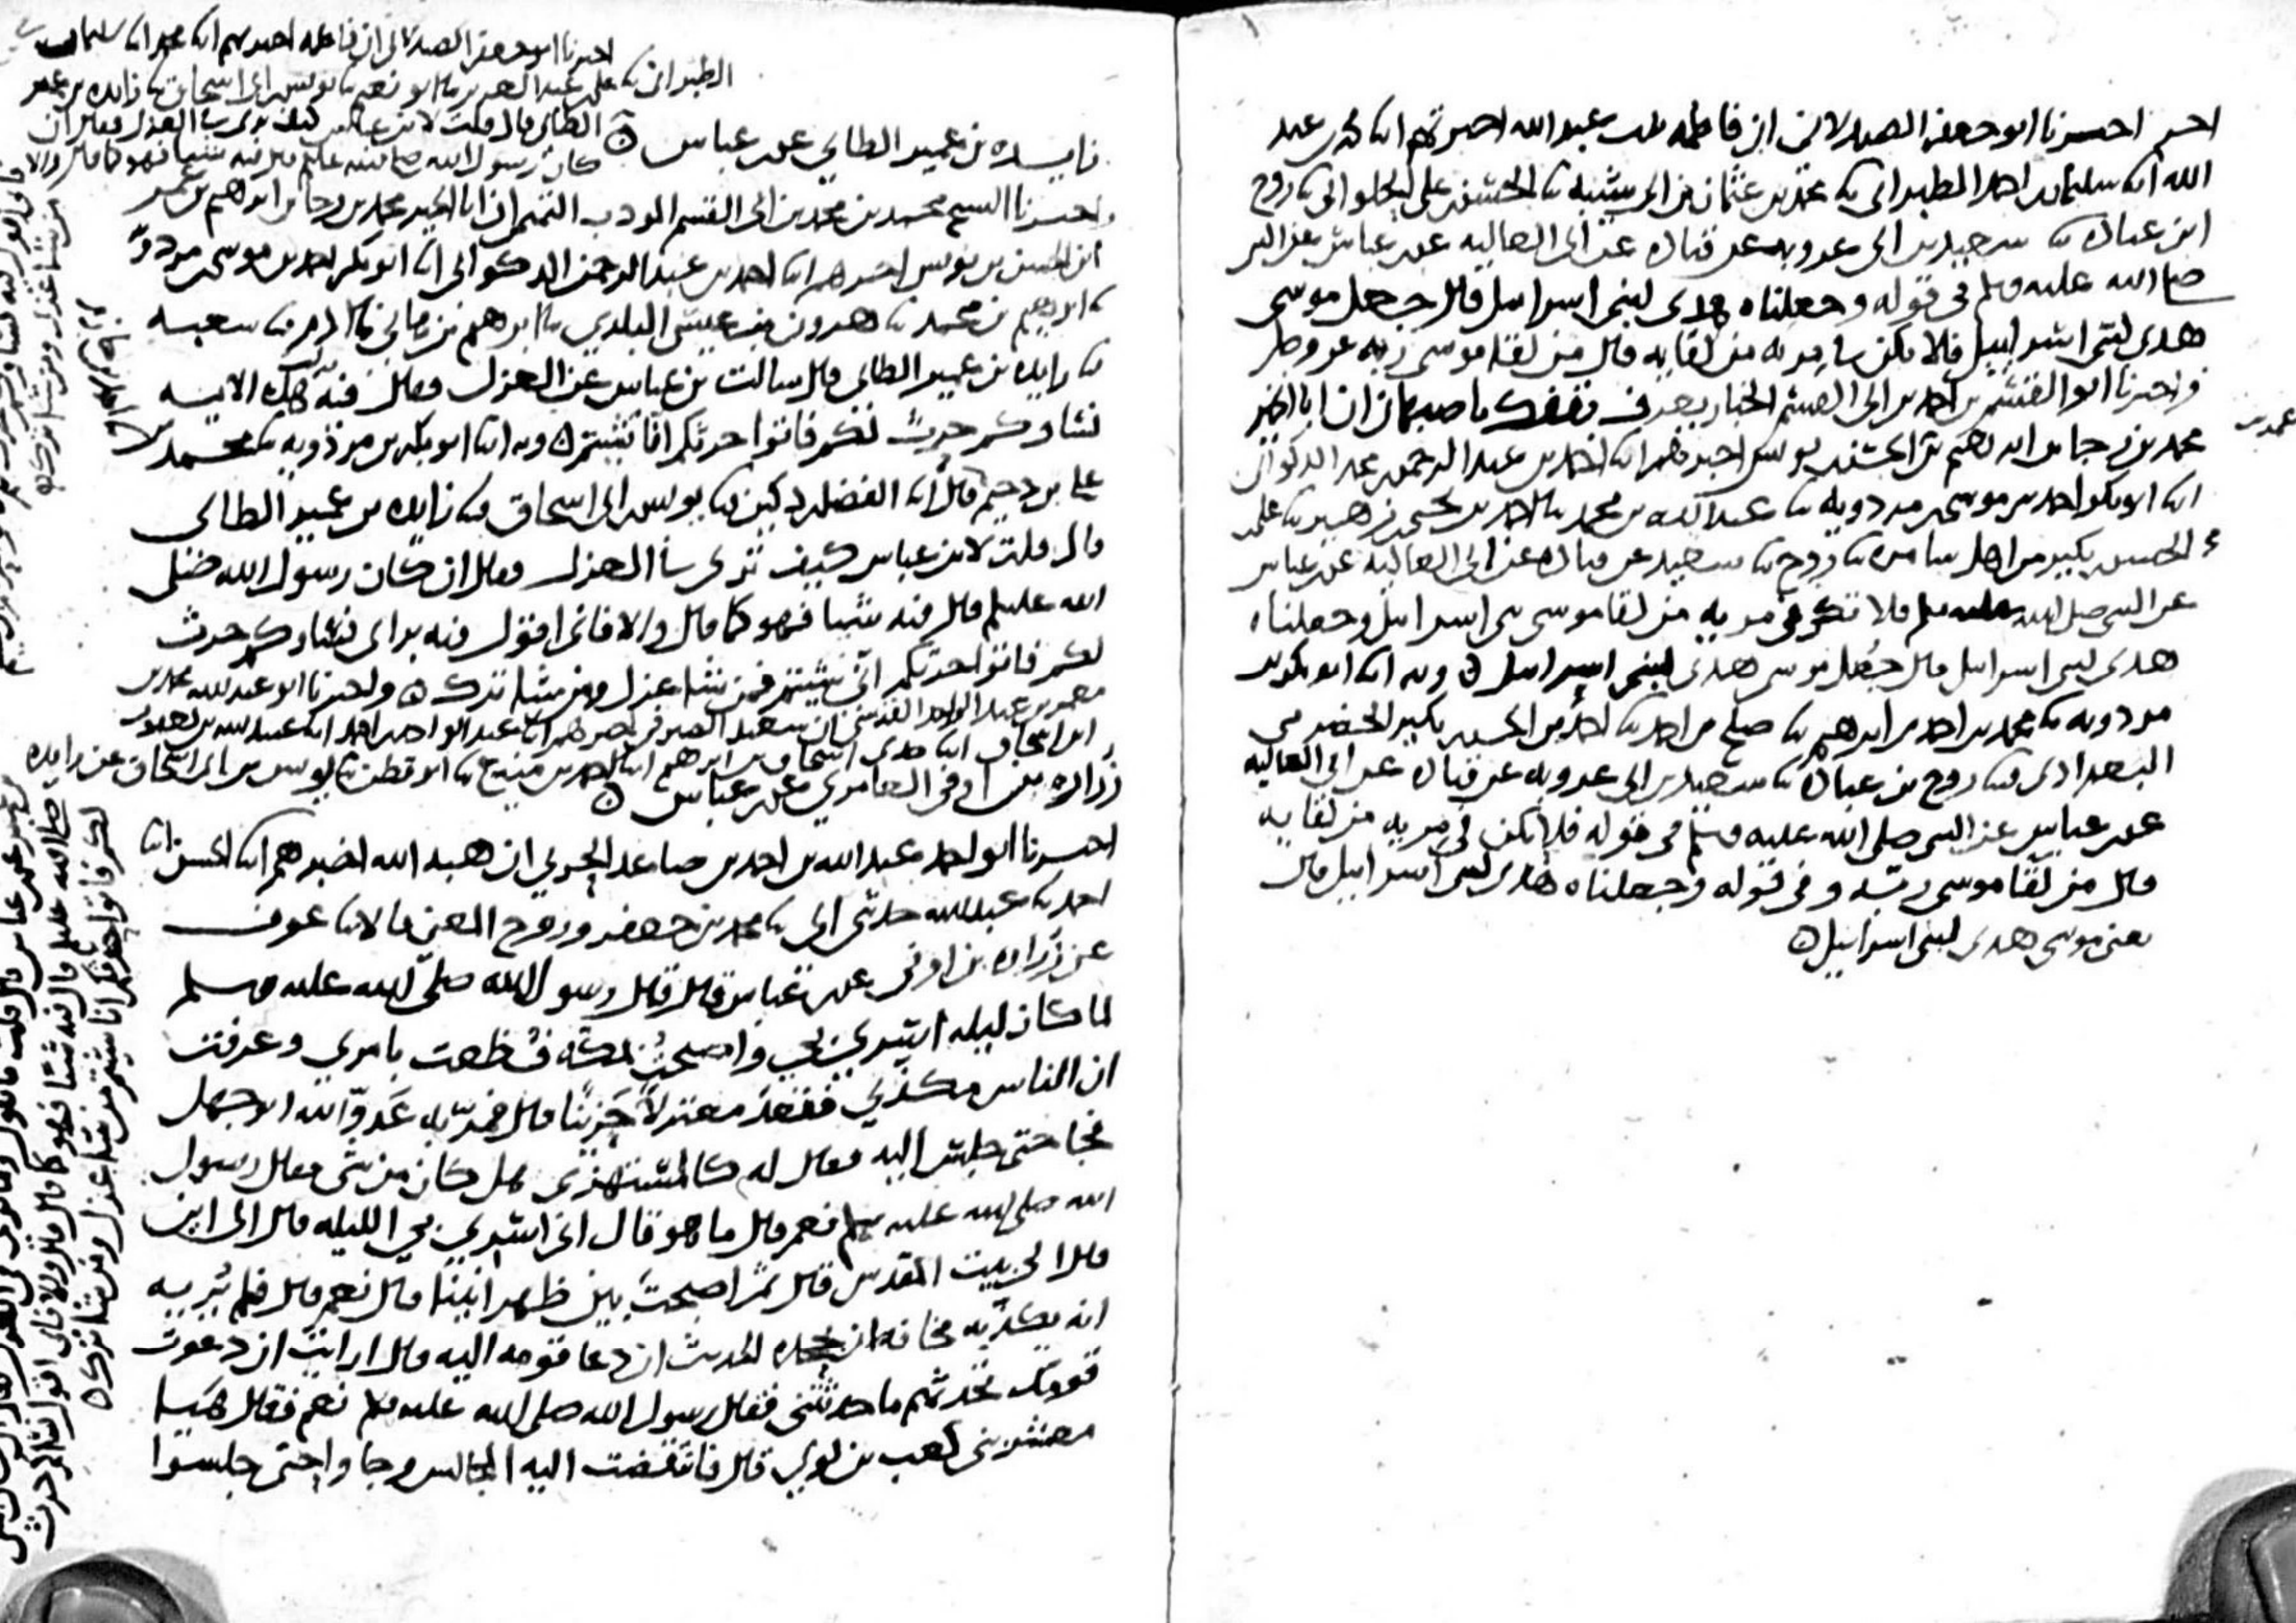 اخر اخبرنا ابو جعفر الصيدلاني ان فاطمه بنت عبد الله اخبرتهم ابنا محمد بن عبد
الله ابنا سليمان بن احمد الطبراني ثنا محمد بن عثمان بن ابي شيبه ثنا الحسن بن علي الحلواني ثنا روح
ابن عباده ثنا سعيد بن ابي عروبه عن قتاده عن ابي العاليه عن ابن عباس عن النبي
صلى الله عليه وسلم في قوله وجعلناه هدى لبني اسرائيل قال جعل موسى
هدى لبني اسرائيل فلا تكن في مريه من لقايه قال من لقا موسى ربه عز وجل
واخبرنا ابو القسم بن احمد بن ابي القسم الخباز يعرف بقفك باصبهان ان ابا الخير
محمد بن رجا بن ابراهيم بن الحسن بن يونس اخبرهم ابنا احمد بن عبد الرحمن بن محمد الذكواني
ابنا ابو بكر احمد بن موسى بن مردويه ثنا عبد الله بن محمد ثنا احمد بن يحيى بن زهير ثنا علي
الحسن بكير من اهل سامره ثنا روح ثنا سعيد عن قتاده عن ابي العاليه عن ابن عباس
عن النبي صلى الله عليه وسلم فلا تكن في مريه من لقا موسى بني اسرائيل وجعلناه
هدى لبني اسرائيل قال جعل موسى هدى لبني اسرائيل ه وبه ابنا ابو بكر بن
مردويه ثنا محمد بن احمد بن ابرهيم ثنا صلح بن احمد ثنا احمد بن الحسين بكير الحضرمي
البغدادي ثنا روح بن عباده ثنا سعيد بن ابي عروبه عن قتاده عن ابي العاليه
عن ابن عباس عن النبي صلى الله عليه وسلم في قوله فلا تكن في مريه من لقايه
قال من لقا موسى ربه وفي قوله وجعلناه هدى لبني اسرائيل قال
يعني موسى هدى لبني اسرائيل ه
اخبرنا ابو جعفر الصيدلاني ان فاطمه اخبرتهم ابنا محمد ابنا سليمان
الطبراني ثنا علي بن عبد العزيز ثنا ابو نعيم ثنا يونس بن ابي اسحاق ثنا زايده بن عمير
الطائي قال قلت لابن عباس كيف ترى في العزل فقال ان
كان رسول الله صلى الله عليه قال فيه شيا فهو كما قال والا
زايده بن عمير الطايي عن ابن عباس ه
واخبرنا الشيخ محمد بن محمد بن ابي القسم المودب التميمي ان ابا الخير محمد بن رجا بن ابراهيم بن عمر
ابن الحسن بن يونس اخبرهم ابنا احمد بن عبد الرحمن الذكواني ابنا ابو بكر احمد بن موسى مردويه
ثنا ابراهيم بن محمد ثنا هرون بن عيسى البلدي ثنا ابرهيم بن هاني ثنا ادم ثنا شعبه
ثنا زايده بن عمير الطائي قال سالت بن عباس عن العزل فقال فيه هذه الايه
نساوكم حرث لكم فاتوا حرثكم انا شيتم ه وبه ابنا ابو بكر بن مردويه ثنا محمد بن
علي بن دحيم قال ابنا الفضل دكين ثنا يونس بن ابي اسحاق ثنا زايده بن عمير الطائي
قال قلت لابن عباس كيف ترى في العزل فقال ان كان رسول الله صلى
الله عليه وسلم قال فيه شيا فهو كما قال والا فاني اقول فيه براي نساوكم حرث
لكم فاتوا حرثكم انى شيتم فمن شا عزل ومن شا ترك ه واخبرنا ابو عبد الله محمد بن
معمر بن عبد الواحد القرشي ان سعيد الصيرفي اخبرهم ابنا عبد الواحد بن احمد ابنا عبيد الله بن يعقوب
ابن اسحاق ابنا جدي اسحاق بن ابرهيم ابنا احمد بن منيع ثنا ابو قطن ثنا يونس بن ابي اسحاق عن زايده
زراره بن اوفى العامري عن ابن عباس ه
اخبرنا ابو احمد عبد الله بن احمد بن صاعد الحربي ان هبه الله اخبرهم ابنا الحسن ابنا
احمد ثنا عبد الله حدثني ابي ثنا محمد بن جعفر وروح المعنى قالا ثنا عوف
عن زراره بن اوفى عن ابن عباس قال قال رسول الله صلى الله عليه وسلم
لما كان ليله اسري بي واصبحت بمكه فظعت بامري وعرفت
ان الناس مكذبي فقعد معتزلا حزينا قال فمر به عدو الله ابو جهل
فجا حتى جلس اليه فقال له كالمستهزى هل كان من شي فقال رسول
الله صلى الله عليه وسلم نعم قال ما هو قال اني اسري بي الليله قال الى اين
قال الى بيت المقدس قال ثم اصبحت بين ظهرانينا قال نعم قال فلم يريه
انه يكذبه مخافه ان يجحده الحديث ان دعا قومه اليه قال ارايت ان دعوت
قومك تحدثهم ما حدثتني فقال رسول الله صلى الله عليه وسلم نعم فقال هيا
معشر بني كعب بن لوي قال فانتفضت اليه المجالس وجاوا حتى جلسوا